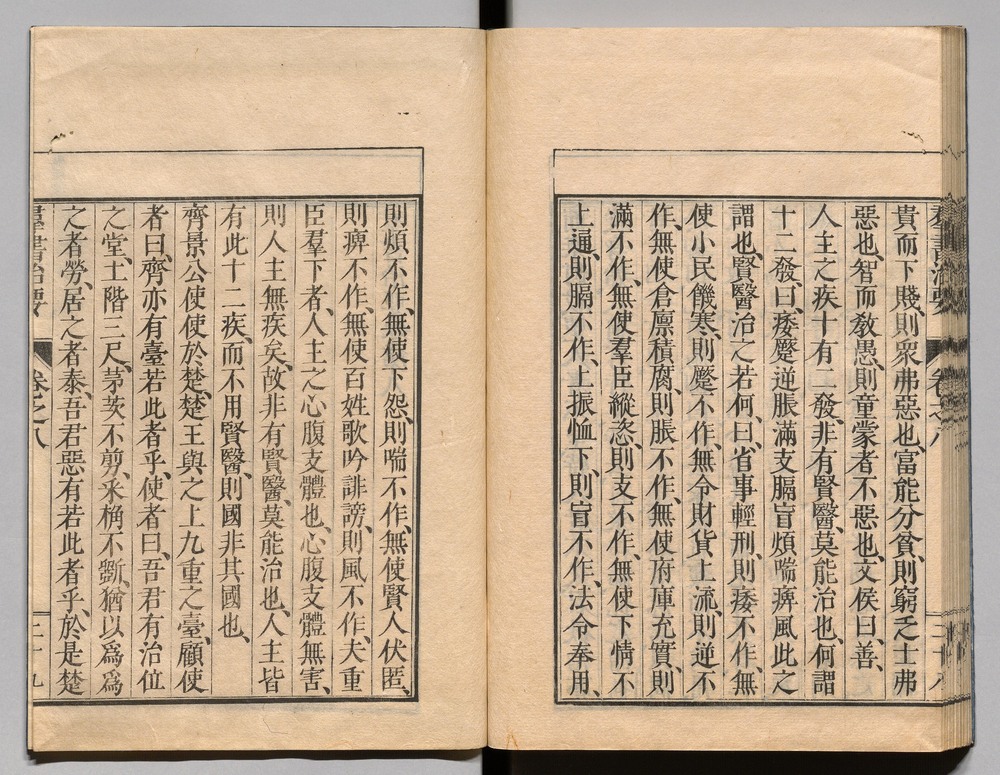 貴而下賤、則衆弗惡也、富能分貧、則窮乏士弗
惡也、智而敎愚、則童蒙者不惡也、文侯曰、善、
人主之疾十有二發、非有賢醫、莫能治也、何謂
十二發、曰、痿蹷逆脹滿支膈盲煩喘痹風此之
謂也、賢醫治之若何、曰、省事輕刑、則痿不作、無
使小民饑寒、則蹷不作、無令財貨上流、則逆不
作、無使倉廩積腐、則脹不作、無使府庫充實、則
滿不作、無使羣臣縱恣、則支不作、無使下情不
上通、則膈不作、上振恤下、則盲不作、法令奉用、
則煩不作、無使下怨、則喘不作、無使賢人伏匿、
則痹不作、無使百姓歌吟誹謗、則風不作、夫重
臣羣下者、人主之心腹支體也、心腹支體無害、
則人主無疾矣、故非有賢醫、莫能治也、人主皆
有此十二疾、而不用賢醫、則國非其國也、
齊景公使使於楚、楚王與之上九重之臺、顧使
者曰、齊亦有臺若此者乎、使者曰、吾君有治位
之堂、土階三尺、茅茨不剪、采桷不斲、猶以爲爲
之者勞、居之者泰、吾君惡有若此者乎、於是楚
卷之八
二十九